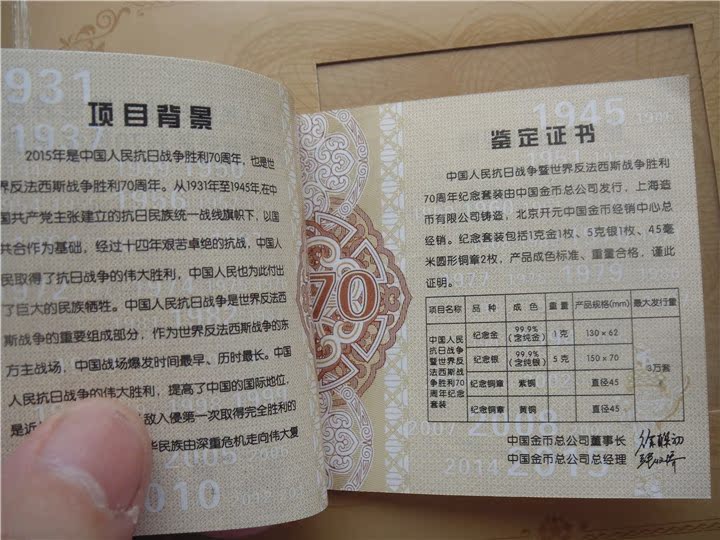 项目背景
2015年是中国人民抗日战争胜利70周年，也是世
界反法西斯战争胜利70周年。从1931年至1945年,在中
国共产党主张建立的抗日民族统一战线旗帜下，以国
共合作为基础，经过十四年艰苦卓绝的抗战，中国人
民取得了抗日战争的伟大胜利，中国人民也为此付出
了巨大的民族牺牲。中国人民抗日战争是世界反法西
斯战争的重要组成部分，作为世界反法西斯战争的东
方主战场，中国战场爆发时间最早、历时最长。中国
人民抗日战争的伟大胜利，提高了中国的国际地位，
是近 敌入侵第一次取得完全胜利的
华民族由深重危机走向伟大复
1931
1937
2005
2010
70
鉴定证书
中国人民抗日战争暨世界反法西斯战争胜利
70周年纪念套装由中国金币总公司发行，上海造
币有限公司铸造，北京开元中国金币经销中心总
经销。纪念套装包括1克金1枚、5克银1枚、45毫
米圆形铜章2枚，产品成色标准、重量合格，谨此
证明。
项目名称 品 种 成 色 重 量 产品规格(mm) 最大发行量
中国人民抗日战争暨世界反法西斯战争胜利70周年纪念套装
纪念金 99.9%(含纯金) 1克 130×62
纪念银 99.9%(含纯银) 5克 150×70
纪念铜章 紫铜 直径45
纪念铜章 黄铜 直径45
万套
中国金币总公司董事长
中国金币总公司总经理
1945
1979
2007
2008
2014
2015